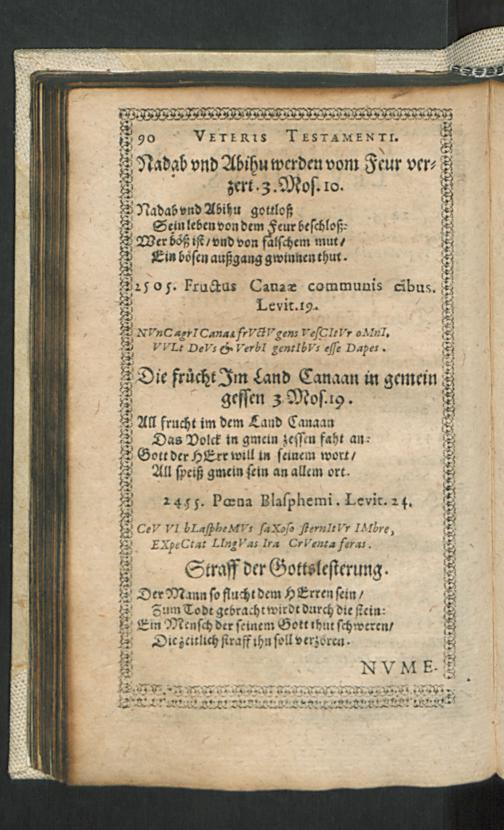 90 VETERIS TESTAMENTI.
Nadab vnd Abihu werden vom Feur ver-
zert. 3. Mos. 10.
Nadab vnd Abihu gottloß
Sein leben von dem Feur beschloß:
Wer böß ist / vnd von falschem mut /
Ein bösen außgang gwinnen thut.
2505. Fructus Canaæ communis cibus.
Levit. 19.
NVnC agrI Canaæ frVCtV gens VesCItVr oMnI,
VVLt DeVs & VerbI gentIbVs esse Dapes.
Die frücht Im Land Canaan in gemein
gessen 3. Mos. 19.
All frucht im dem Land Canaan
Das Volck in gmein zessen faht an:
Gott der HErr will in seinem wort /
All speiß gmein sein an allem ort.
2455. Pœna Blasphemi. Levit. 24.
CeV VI bLaspheMVs saXoso sternItVr IMbre,
EXpeCtat LIngVas Ira CrVenta feras.
Straff der Gottslesterung.
Der Mann so flucht dem HErren sein /
Zum Todt gebracht wirdt durch die stein:
Ein Mensch der seinem Gott thut schweren /
Die zeitlich straff ihn soll verzören.
NVME-